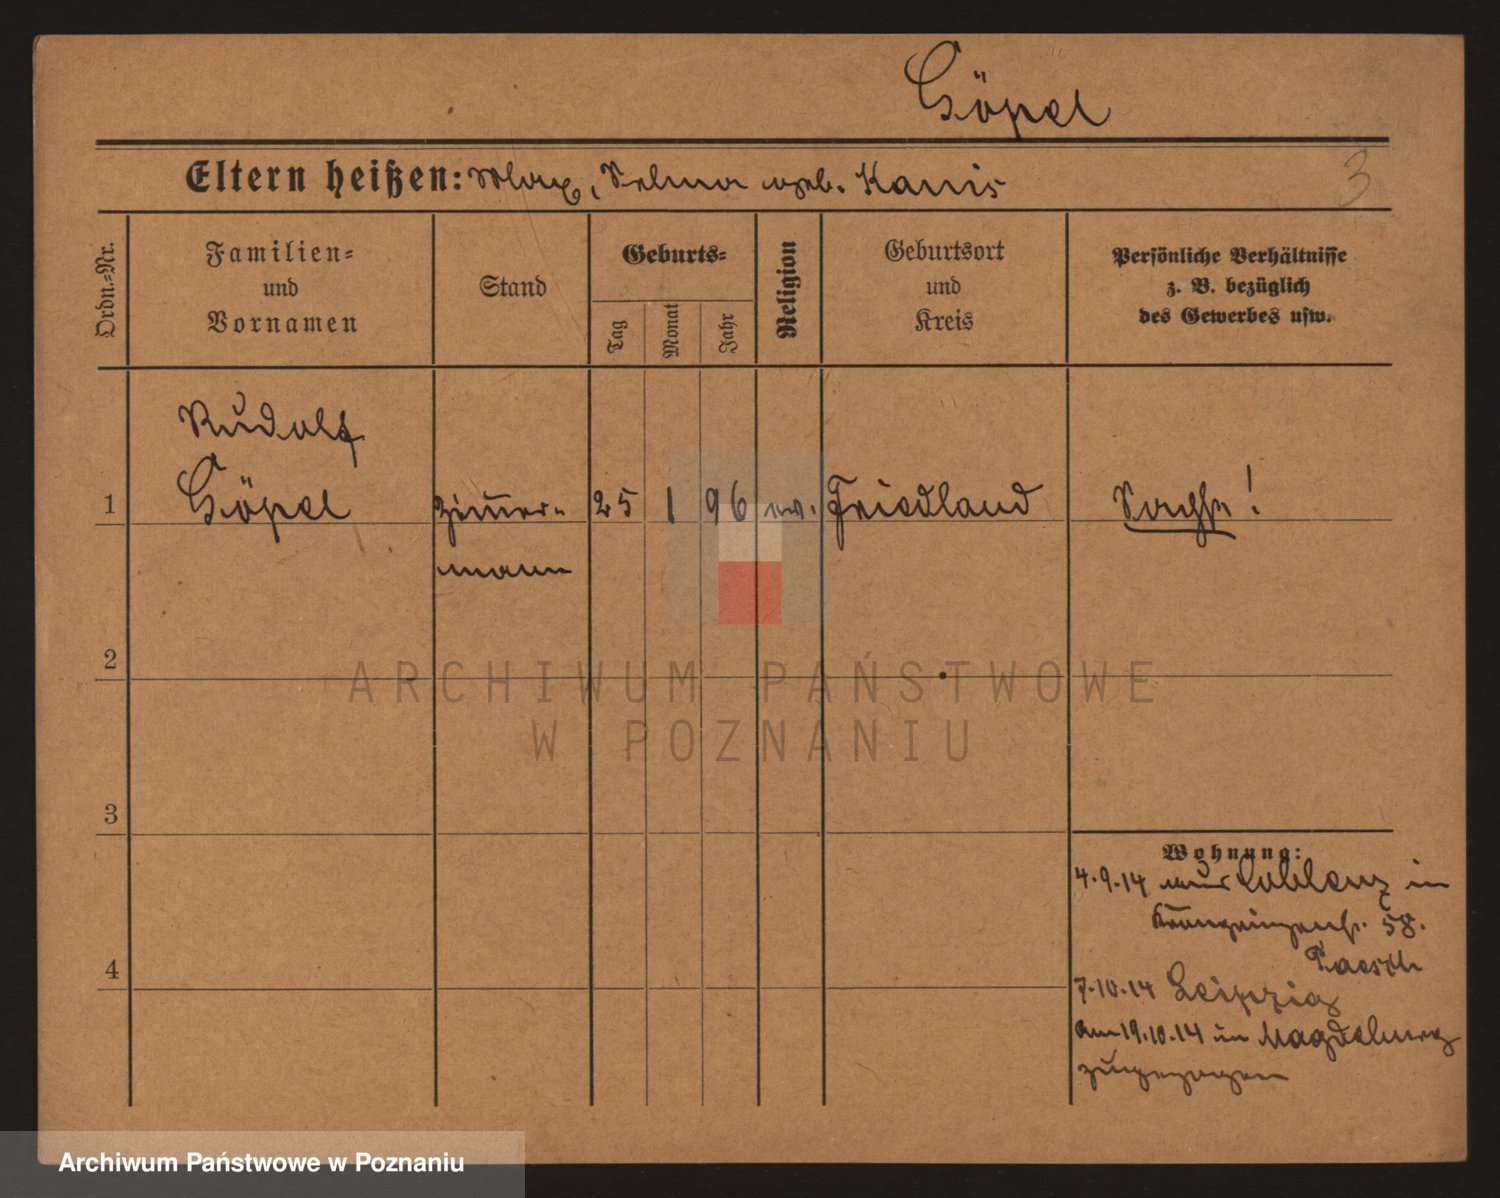 Göpel
3
Eltern heißen: Max, Selma geb. Kanis
Ordn.=Nr.
Familien=
und
Vornamen
Stand
Geburts=
Tag
Monat
Jahr
Religion
Geburtsort
und
Kreis
Persönliche Verhältnisse
z. B. bezüglich
des Gewerbes usw.
Rudolf
1 Göpel Zimmer= 25 1 96 ev. Friedland Sachse!
mann
2
3
4
Wohnung:
4.9.14 aus Coblenz in
58.
7.10.14 Leipzig
am 19.10.14 in Magdeburg
zugezogen
ARCHIWUM PAŃSTWOWE
W POZNANIU
Archiwum Państwowe w Poznaniu